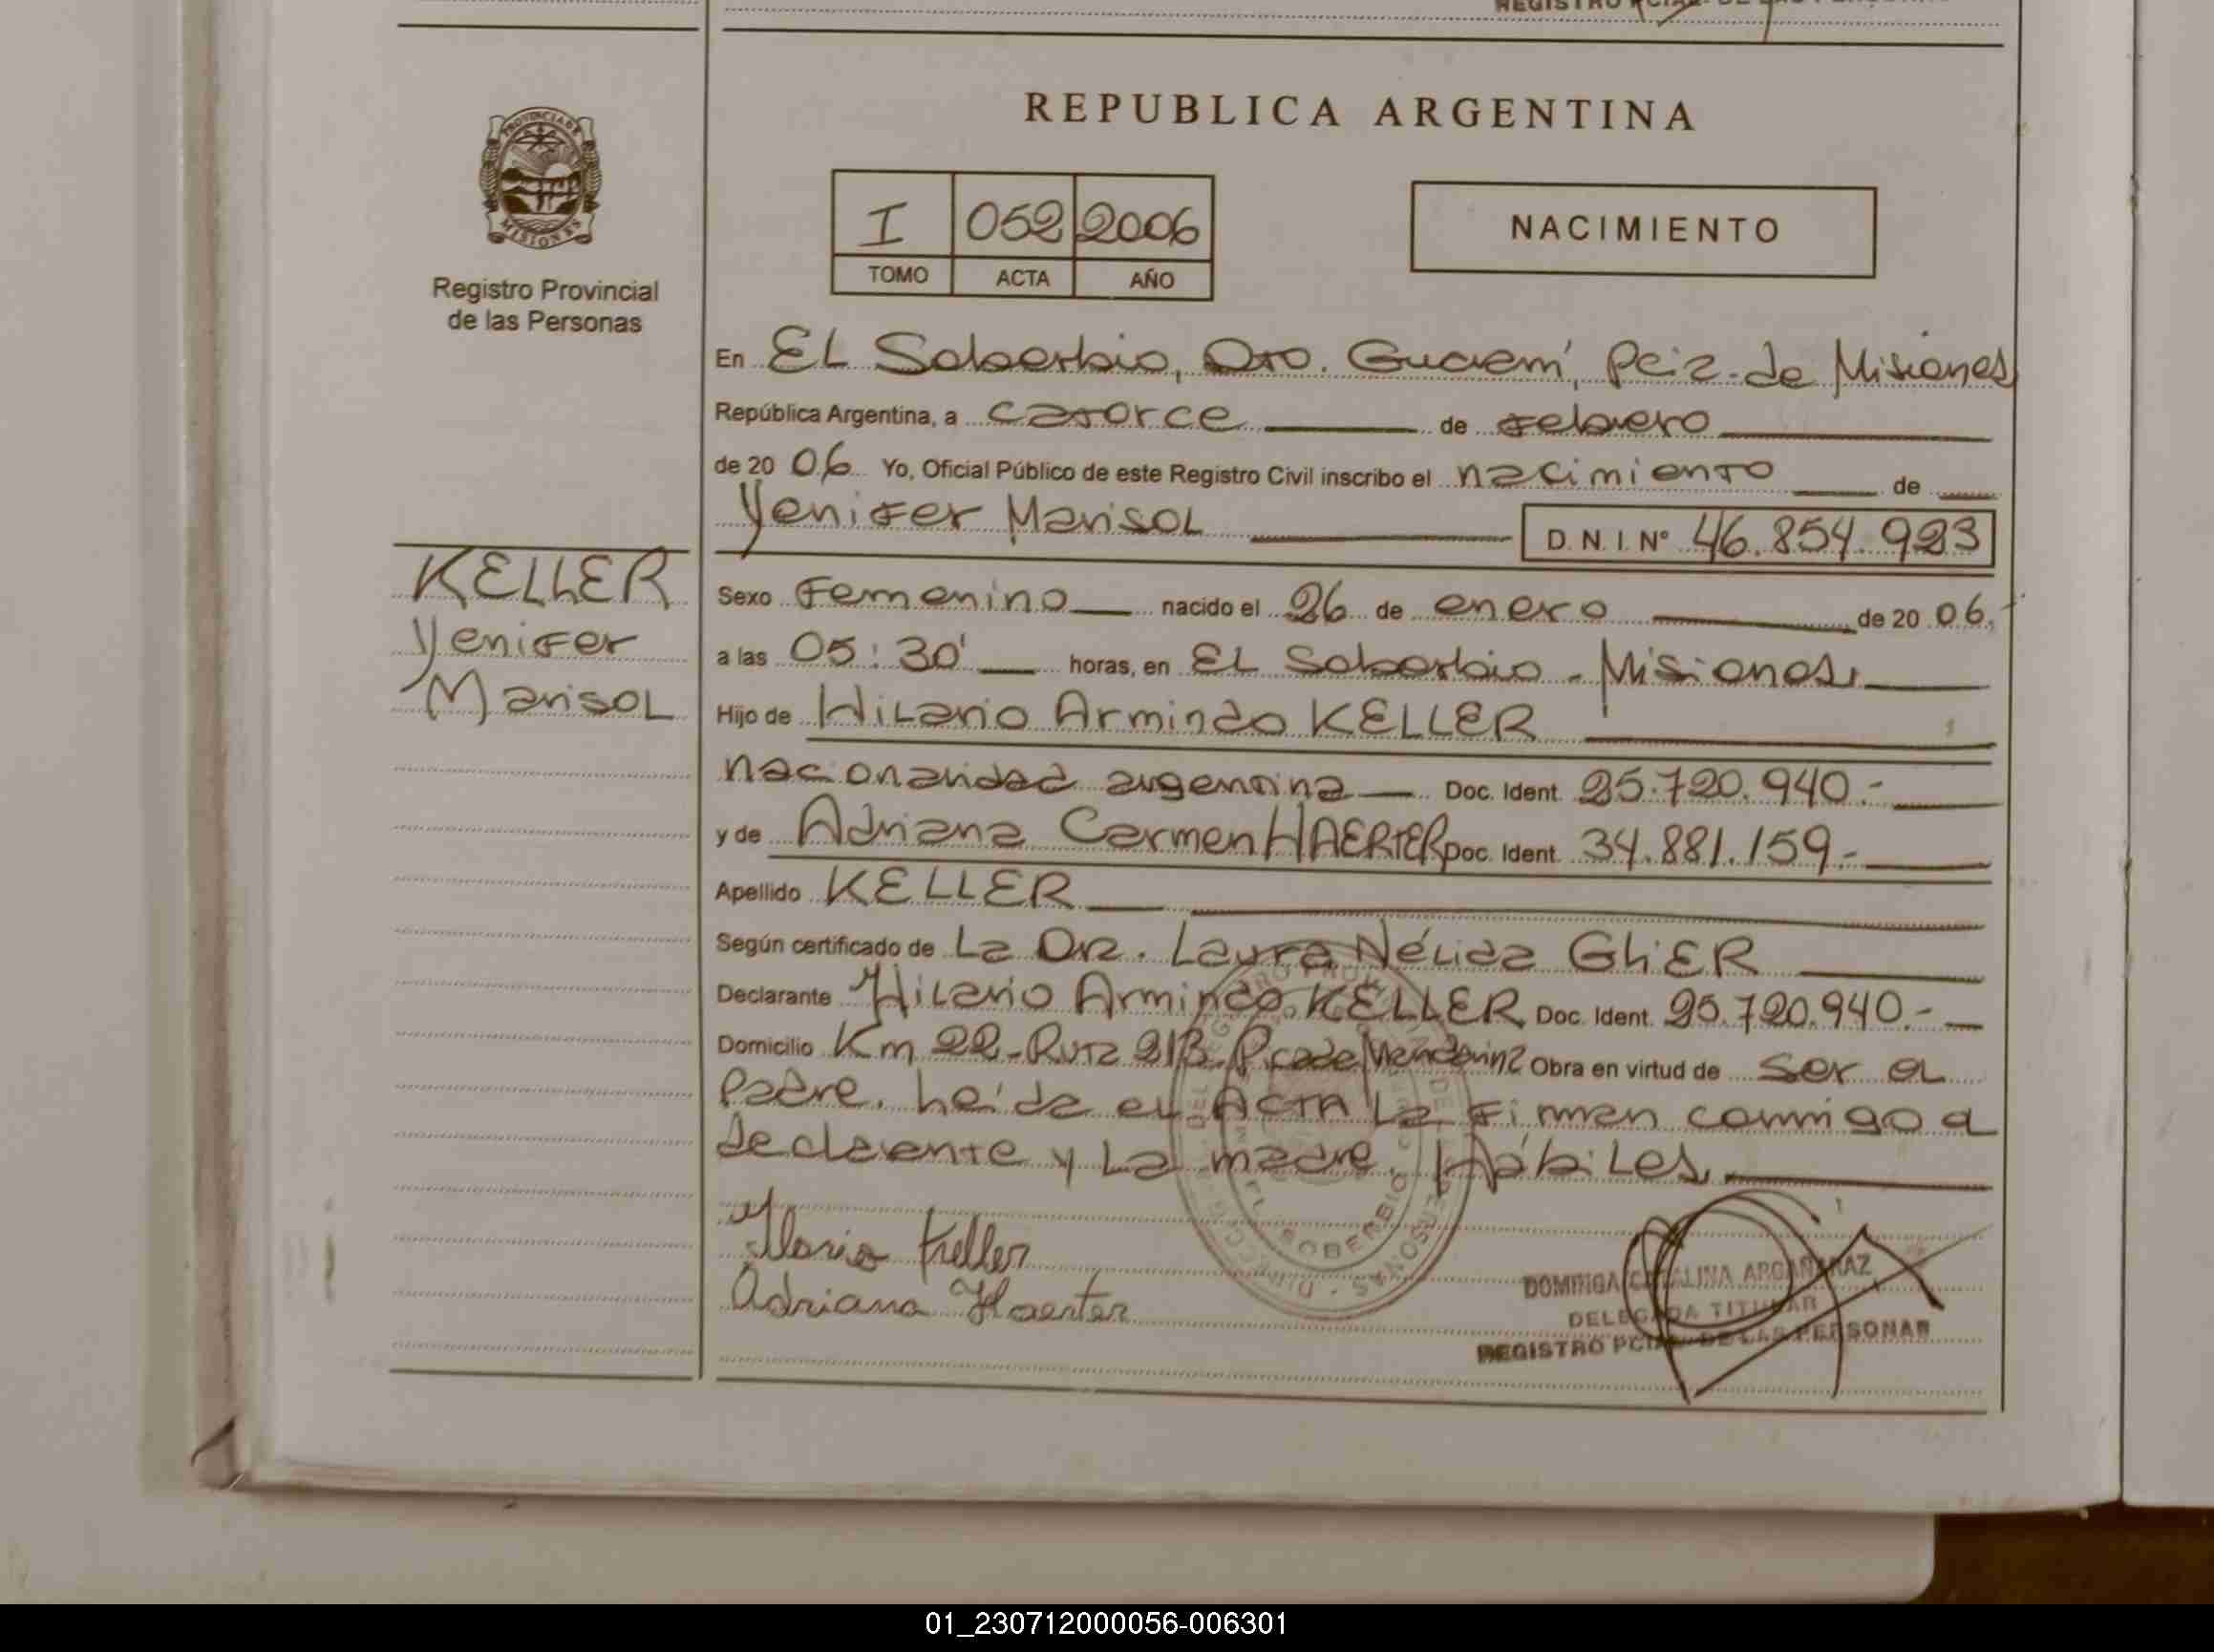 REPUBLICA ARGENTINA
PROVINCIA DE MISIONES
Registro Provincial
de las Personas
I 052 2006
TOMO ACTA AÑO
NACIMIENTO
En EL Soberbio, Dto. Guaraní, Pcia. de Misiones
República Argentina, a catorce de febrero
de 20 06 Yo, Oficial Público de este Registro Civil inscribo el nacimiento de
Yenifer Marisol D. N. I. Nº 46.854.923
KELLER
Yenifer
Marisol
Sexo Femenino nacido el 26 de enero de 20 06.
a las 05:30' horas, en EL Soberbio - Misiones
Hijo de Hilario Armindo KELLER
nacionalidad argentina Doc. Ident. 25.720.940.-
y de Adriana Carmen HAERTER Doc. Ident. 34.881.159.-
Apellido KELLER
Según certificado de La Dra. Laura Nélida GhER
Declarante Hilario Armindo KELLER Doc. Ident. 25.720.940.-
Domicilio Km 22-Ruta 213 Obra en virtud de ser el
Padre. Leída el ACTA La Firman conmigo el
declarante y La madre. Hábiles.
Ilario Keller
Adriana Haerter
EL SOBERBIO
DELEGADA TITULAR
REGISTRO PCIAL. DE LAS PERSONAS
01_230712000056-006301